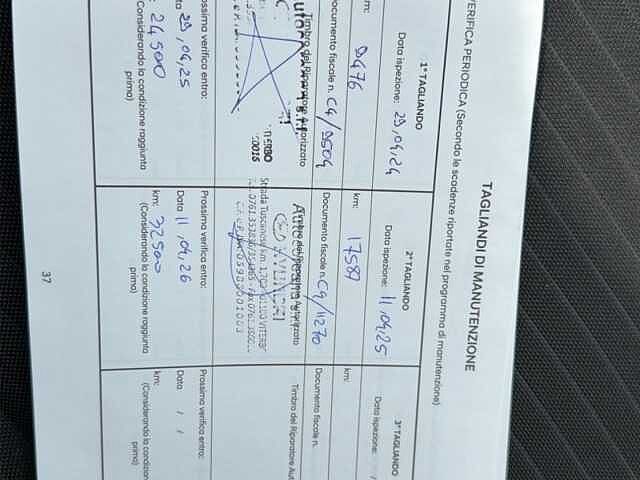 TAGLIANDI DI MANUTENZIONE
VERIFICA PERIODICA (Secondo le scadenze riportate nel programma di manutenzione)
1° TAGLIANDO
Data ispezione: 29,04,24
km: 9476
Documento fiscale n. C9/9504
Timbro del Riparatore Autorizzato
Prossima verifica entro:
Data 29,04,25
km: 24500
(Considerando la condizione raggiunta
prima)
2° TAGLIANDO
Data ispezione: 11,04,25
km: 17587
Documento fiscale n. C9/11270
Timbro del Riparatore Autorizzato
Strada Tuscanese km.
Prossima verifica entro:
Data 11,04,26
km: 32500
(Considerando la condizione raggiunta
prima)
3° TAGLIANDO
Data ispezione: /
km:
Documento fiscale n.
Timbro del Riparatore Aut
Prossima verifica entro:
Data / /
km:
(Considerando la condizion
prima)
37